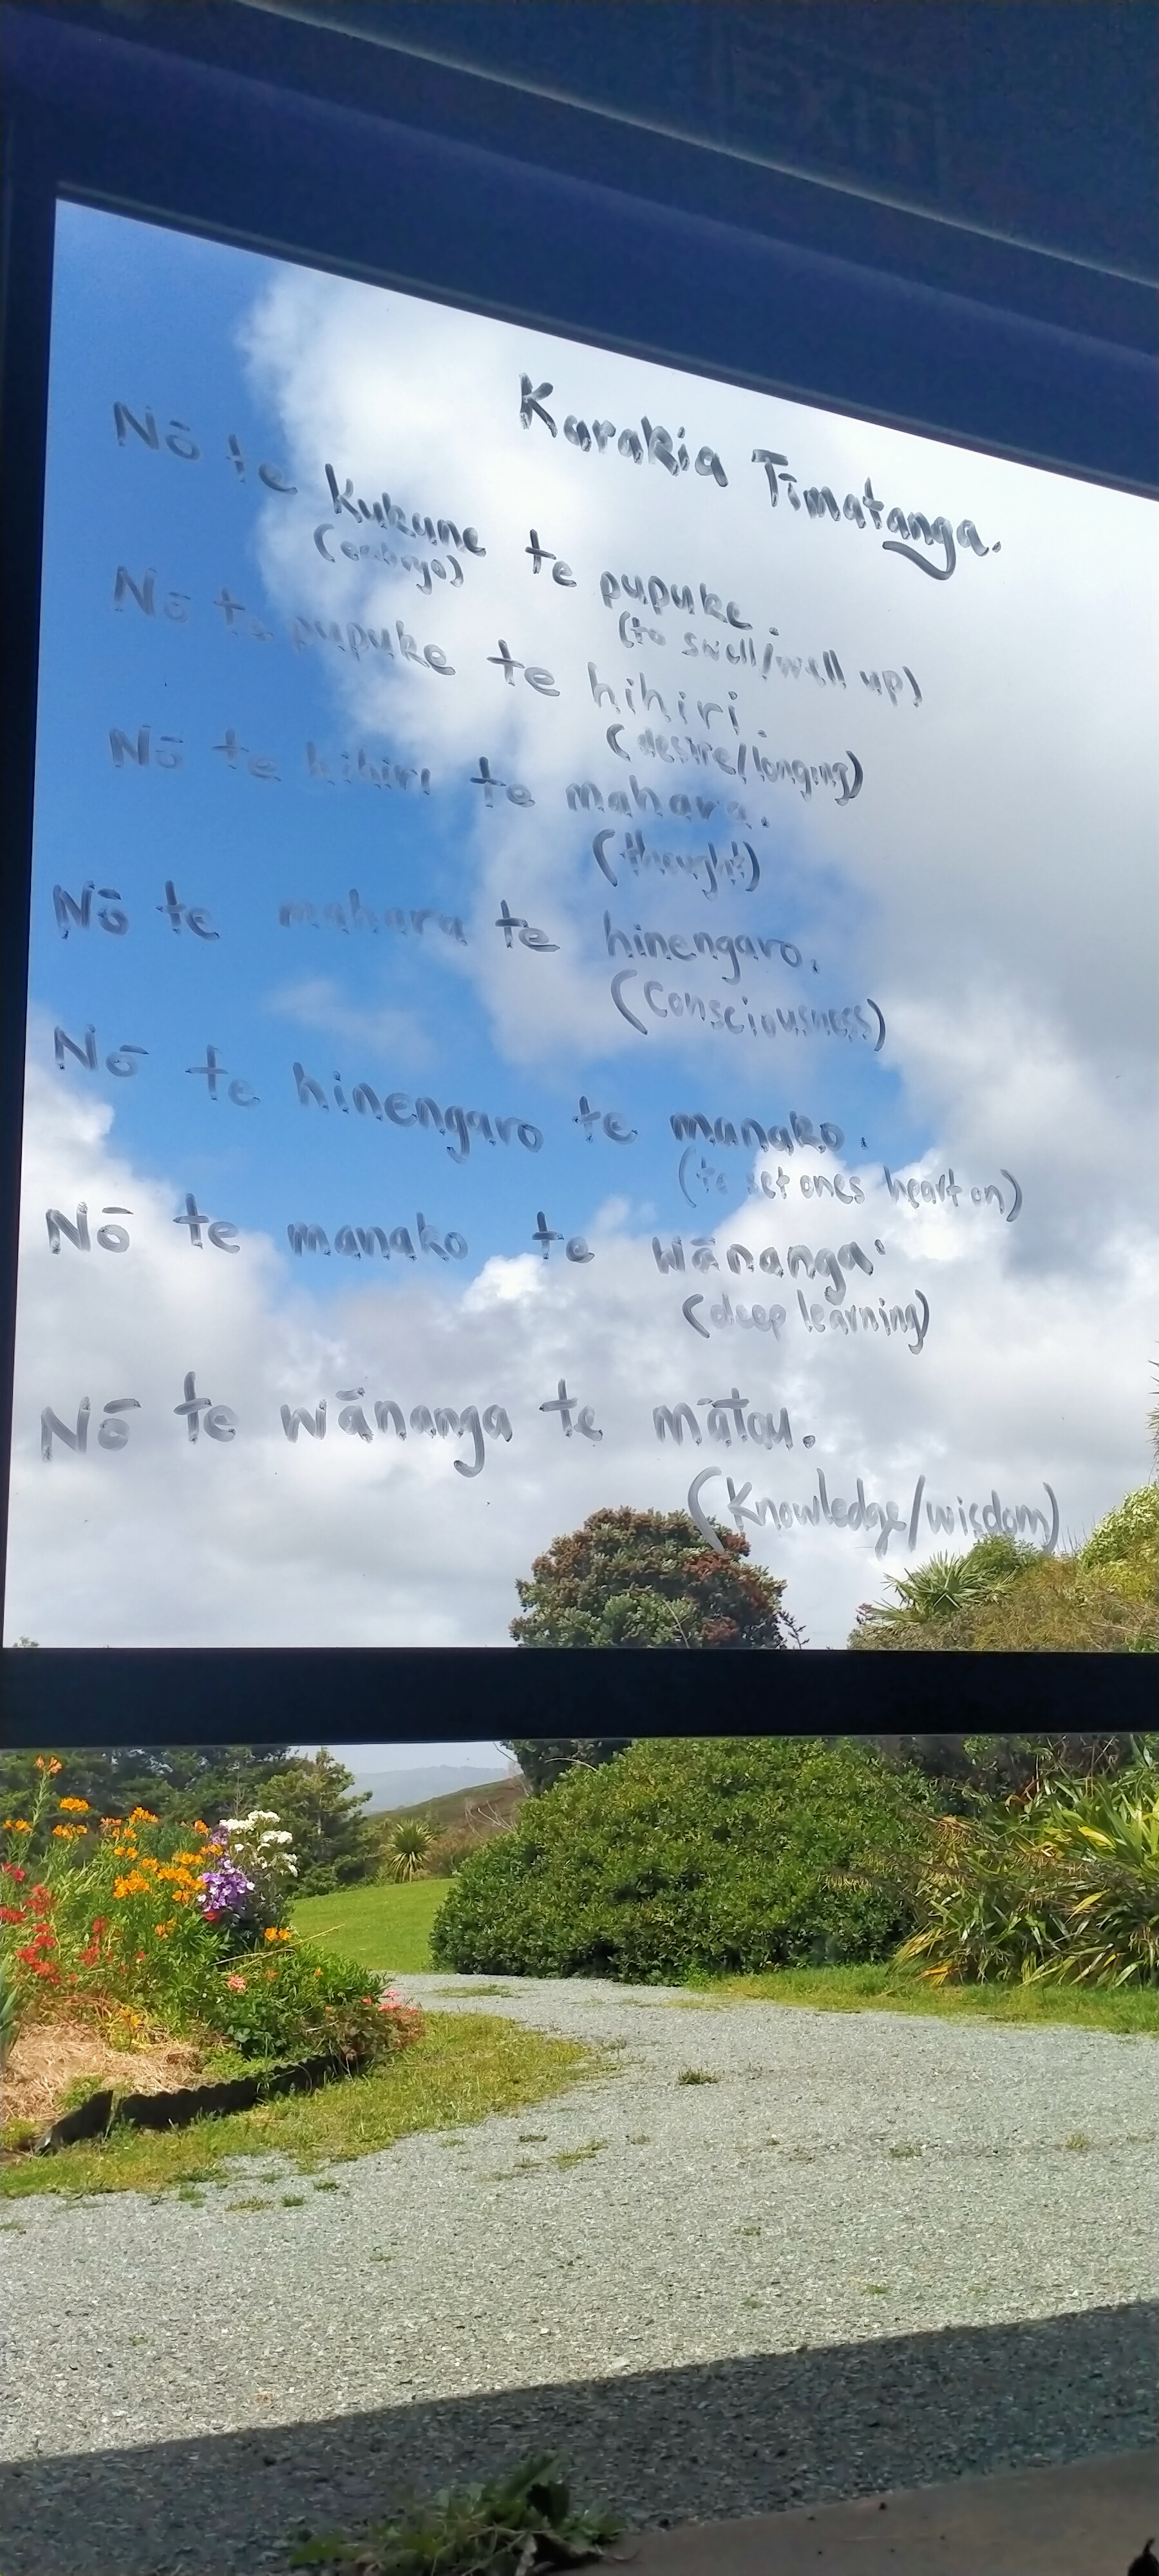 Karakia Tīmatanga.
Nō te kukune te pupuke.
(embryo)
(to swell/well up)
Nō te pupuke te hihiri.
(desire/longing)
Nō te hihiri te mahara.
(thought)
Nō te mahara te hinengaro.
(Consciousness)
Nō te hinengaro te manako.
(to set ones heart on)
Nō te manako te wānanga.
(deep learning)
Nō te wānanga te mātau.
(Knowledge/wisdom)